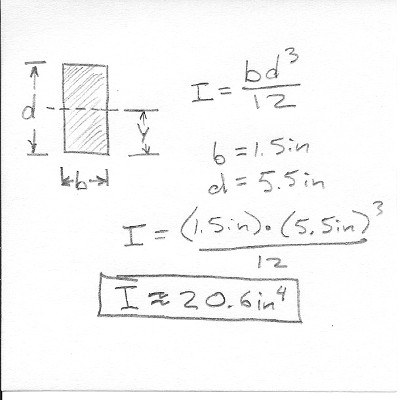 d
y
b
I = bd³/12
b = 1.5in
d = 5.5in
I = (1.5in)·(5.5in)³/12
I ≈ 20.6in⁴